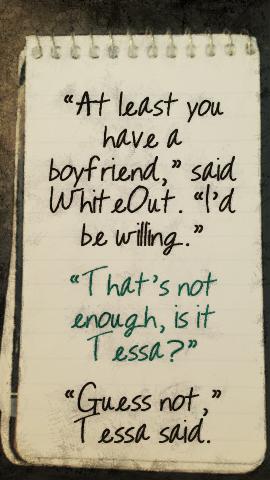 “At least you
have a
boyfriend,” said
WhiteOut. “I’d
be willing.”
“That’s not
enough, is it
Tessa?”
“Guess not,”
Tessa said.